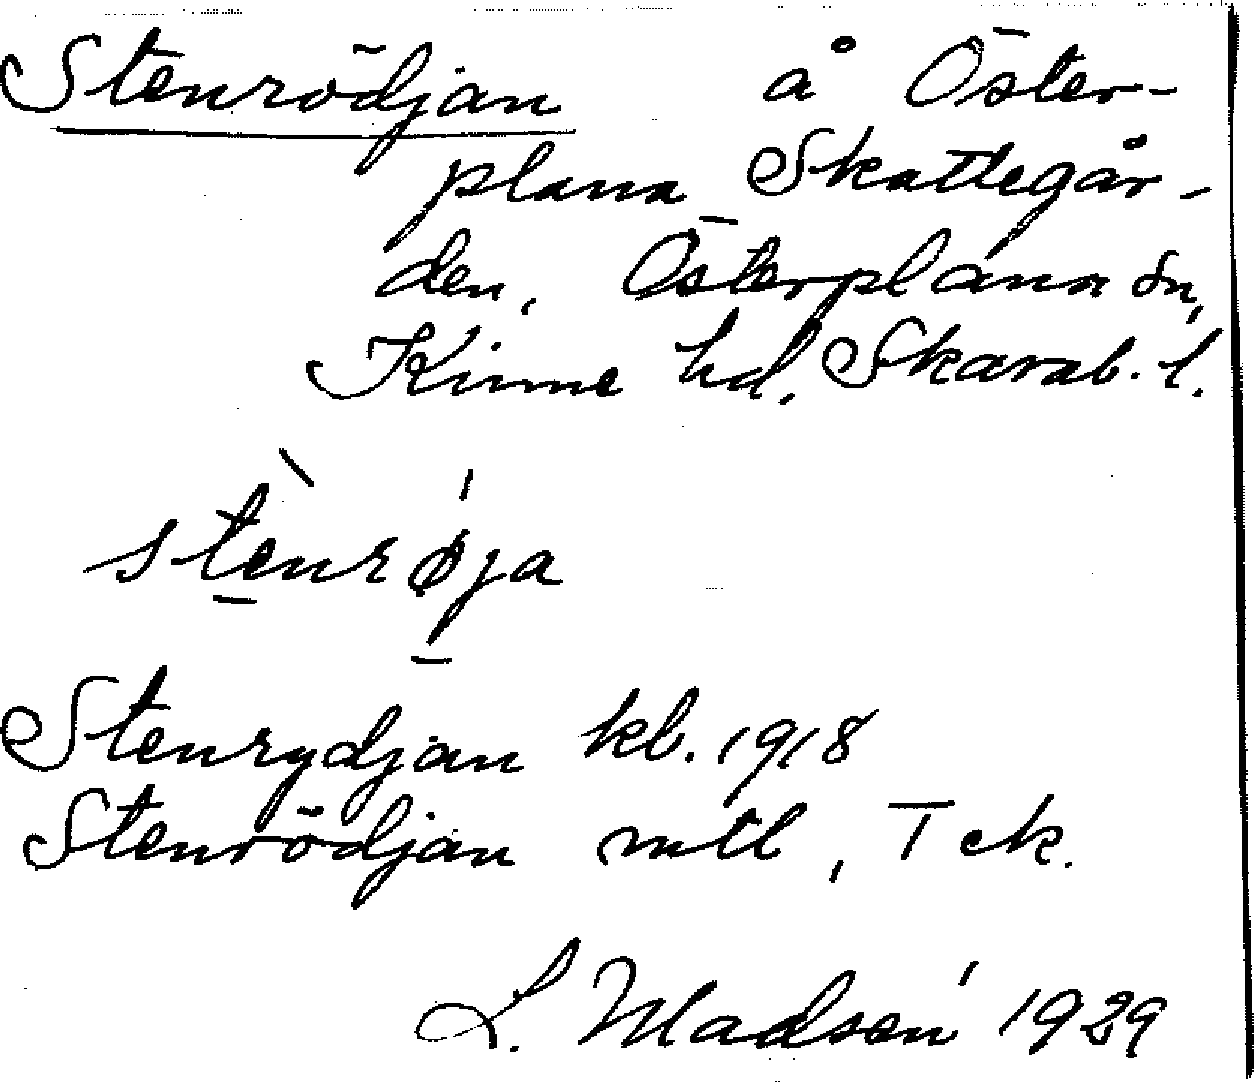 Stenrödjan å Öster-
plana Skattegår-
den, Österplana sn,
Kinne hd, Skarab. l.
stènrǿja
Stenrydjan kb. 1918
Stenrödjan mtl, T ek.
L. Madsén 1929